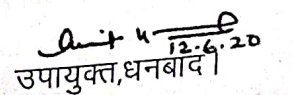 12.6.20
उपायुक्त,धनबाद।